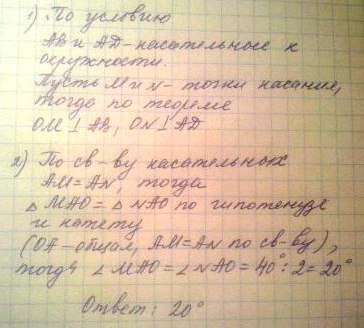 1) По условию
АВ и АД - касательные к
окружности.
Пусть М и N - точки касания,
тогда по теореме
ОМ ⊥ АВ, ON ⊥ АД
2) По св-ву касательных
АМ = АN, тогда
△ МАО = △ NАО по гипотенузе
и катету
(ОА - общая, АМ = АN по св-ву),
тогда ∠ МАО = ∠ NАО = 40° : 2 = 20°
Ответ: 20°